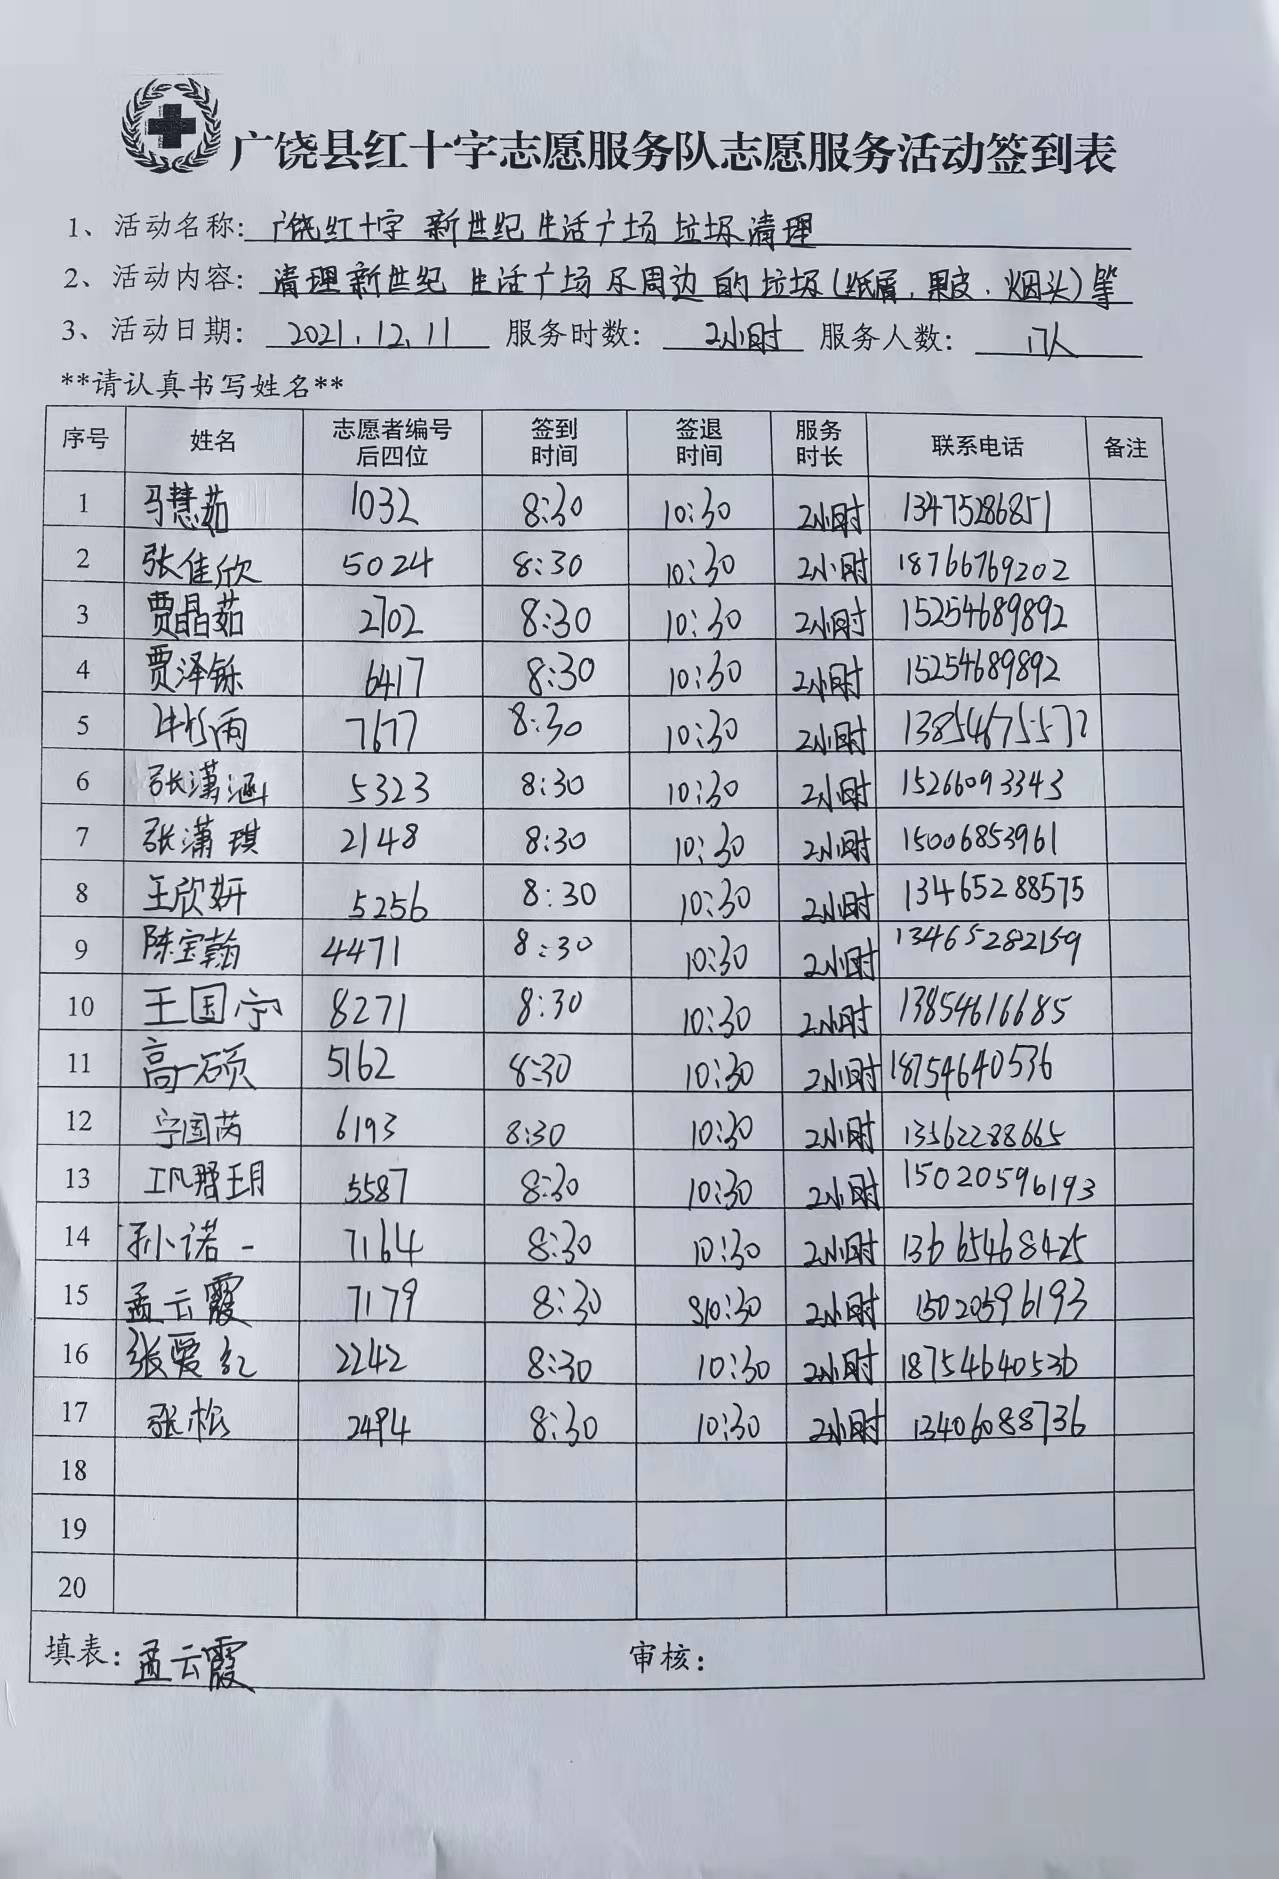 广饶县红十字志愿服务队志愿服务活动签到表
1、活动名称：广饶红十字 新世纪生活广场 垃圾清理
2、活动内容：清理新世纪 生活广场 及周边的垃圾(纸屑、果皮、烟头)等
3、活动日期：2021.12.11 服务时数：2小时 服务人数：17人
**请认真书写姓名**
序号 姓名 志愿者编号后四位 签到时间 签退时间 服务时长 联系电话 备注
1 马慧茹 1032 8:30 10:30 2小时 13475286851
2 张佳欣 5024 8:30 10:30 2小时 18766769202
3 贾晶茹 2702 8:30 10:30 2小时 15254689892
4 贾泽铄 6417 8:30 10:30 2小时 15254689892
5 7677 8:30 10:30 2小时 13854675572
6 张潇涵 5323 8:30 10:30 2小时 15266093343
7 张潇琪 2148 8:30 10:30 2小时 15006853961
8 王欣妍 5256 8:30 10:30 2小时 13465288575
9 陈宝翰 4471 8:30 10:30 2小时 13465282159
10 王国宁 8271 8:30 10:30 2小时 13854616685
11 高一硕 5162 8:30 10:30 2小时 18754640536
12 宁国芮 6193 8:30 10:30 2小时 13562288665
13 5587 8:30 10:30 2小时 15020596193
14 孙诺一 7164 8:30 10:30 2小时 13665468425
15 孟云霞 7179 8:30 10:30 2小时 15020596193
16 张爱红 2242 8:30 10:30 2小时 18754640536
17 张松 2494 8:30 10:30 2小时 13406088736
18
19
20
填表：孟云霞 审核：